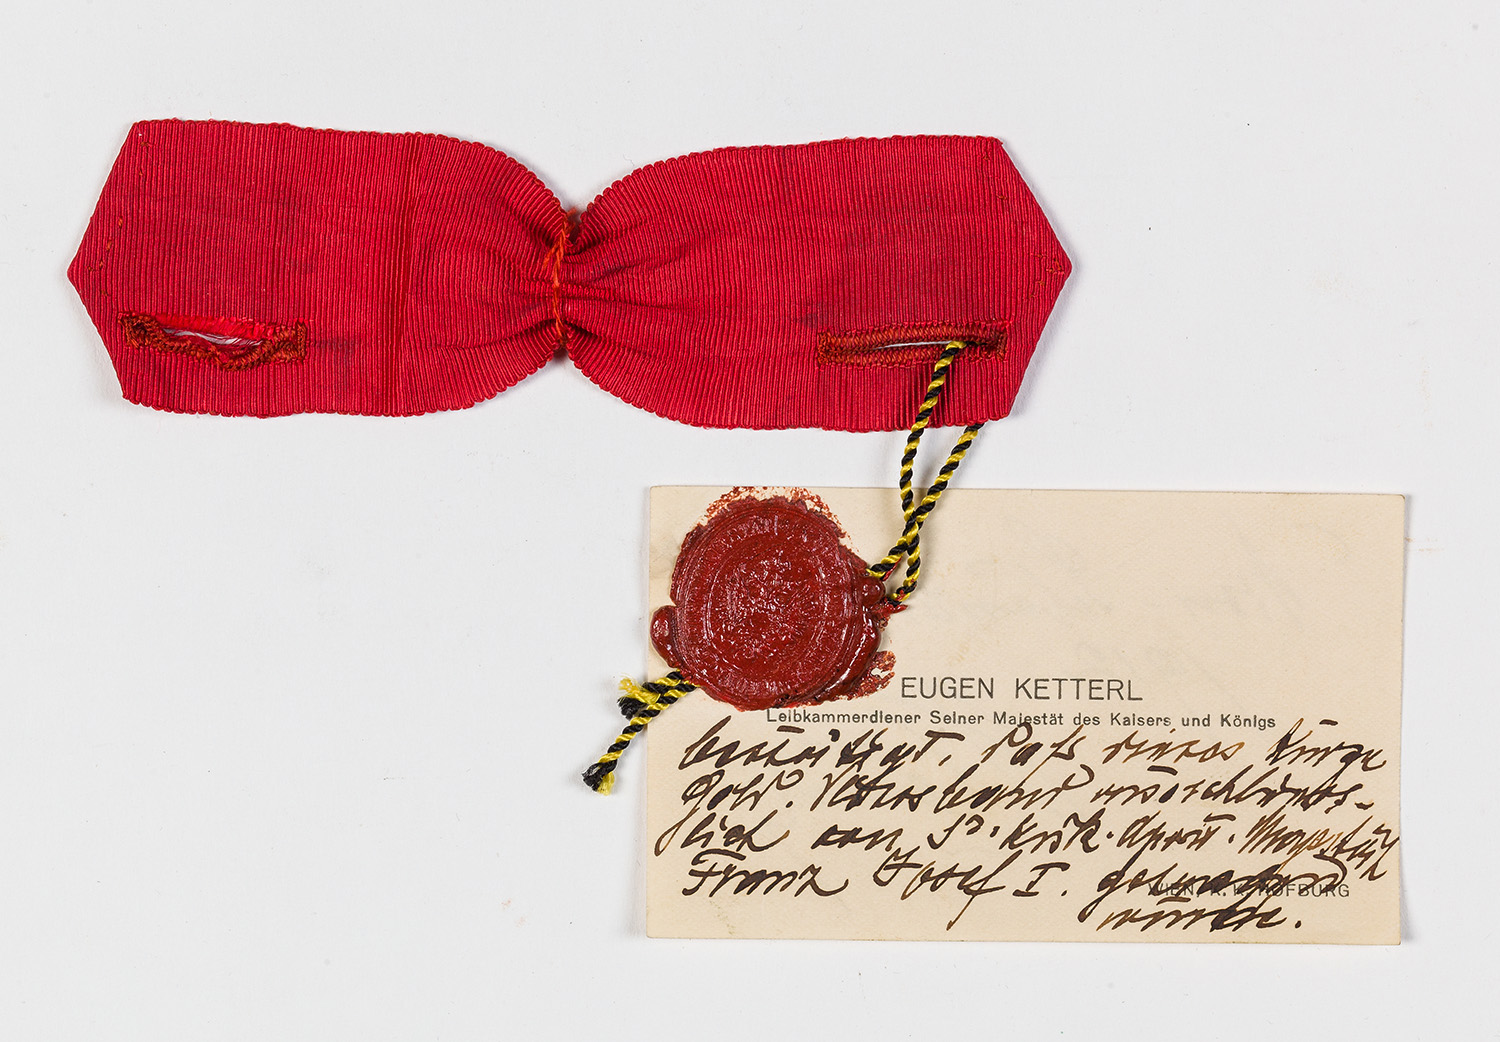 EUGEN KETTERL
Leibkammerdiener Seiner Majestät des Kaisers und Königs
bestätigt, daß dieses kurze
Gold. Vliesband ausschliess-
lich von Sr. k.u.k. Apost. Majestät
Franz Josef I. getragen
WIEN, K. K. HOFBURG
wurde.